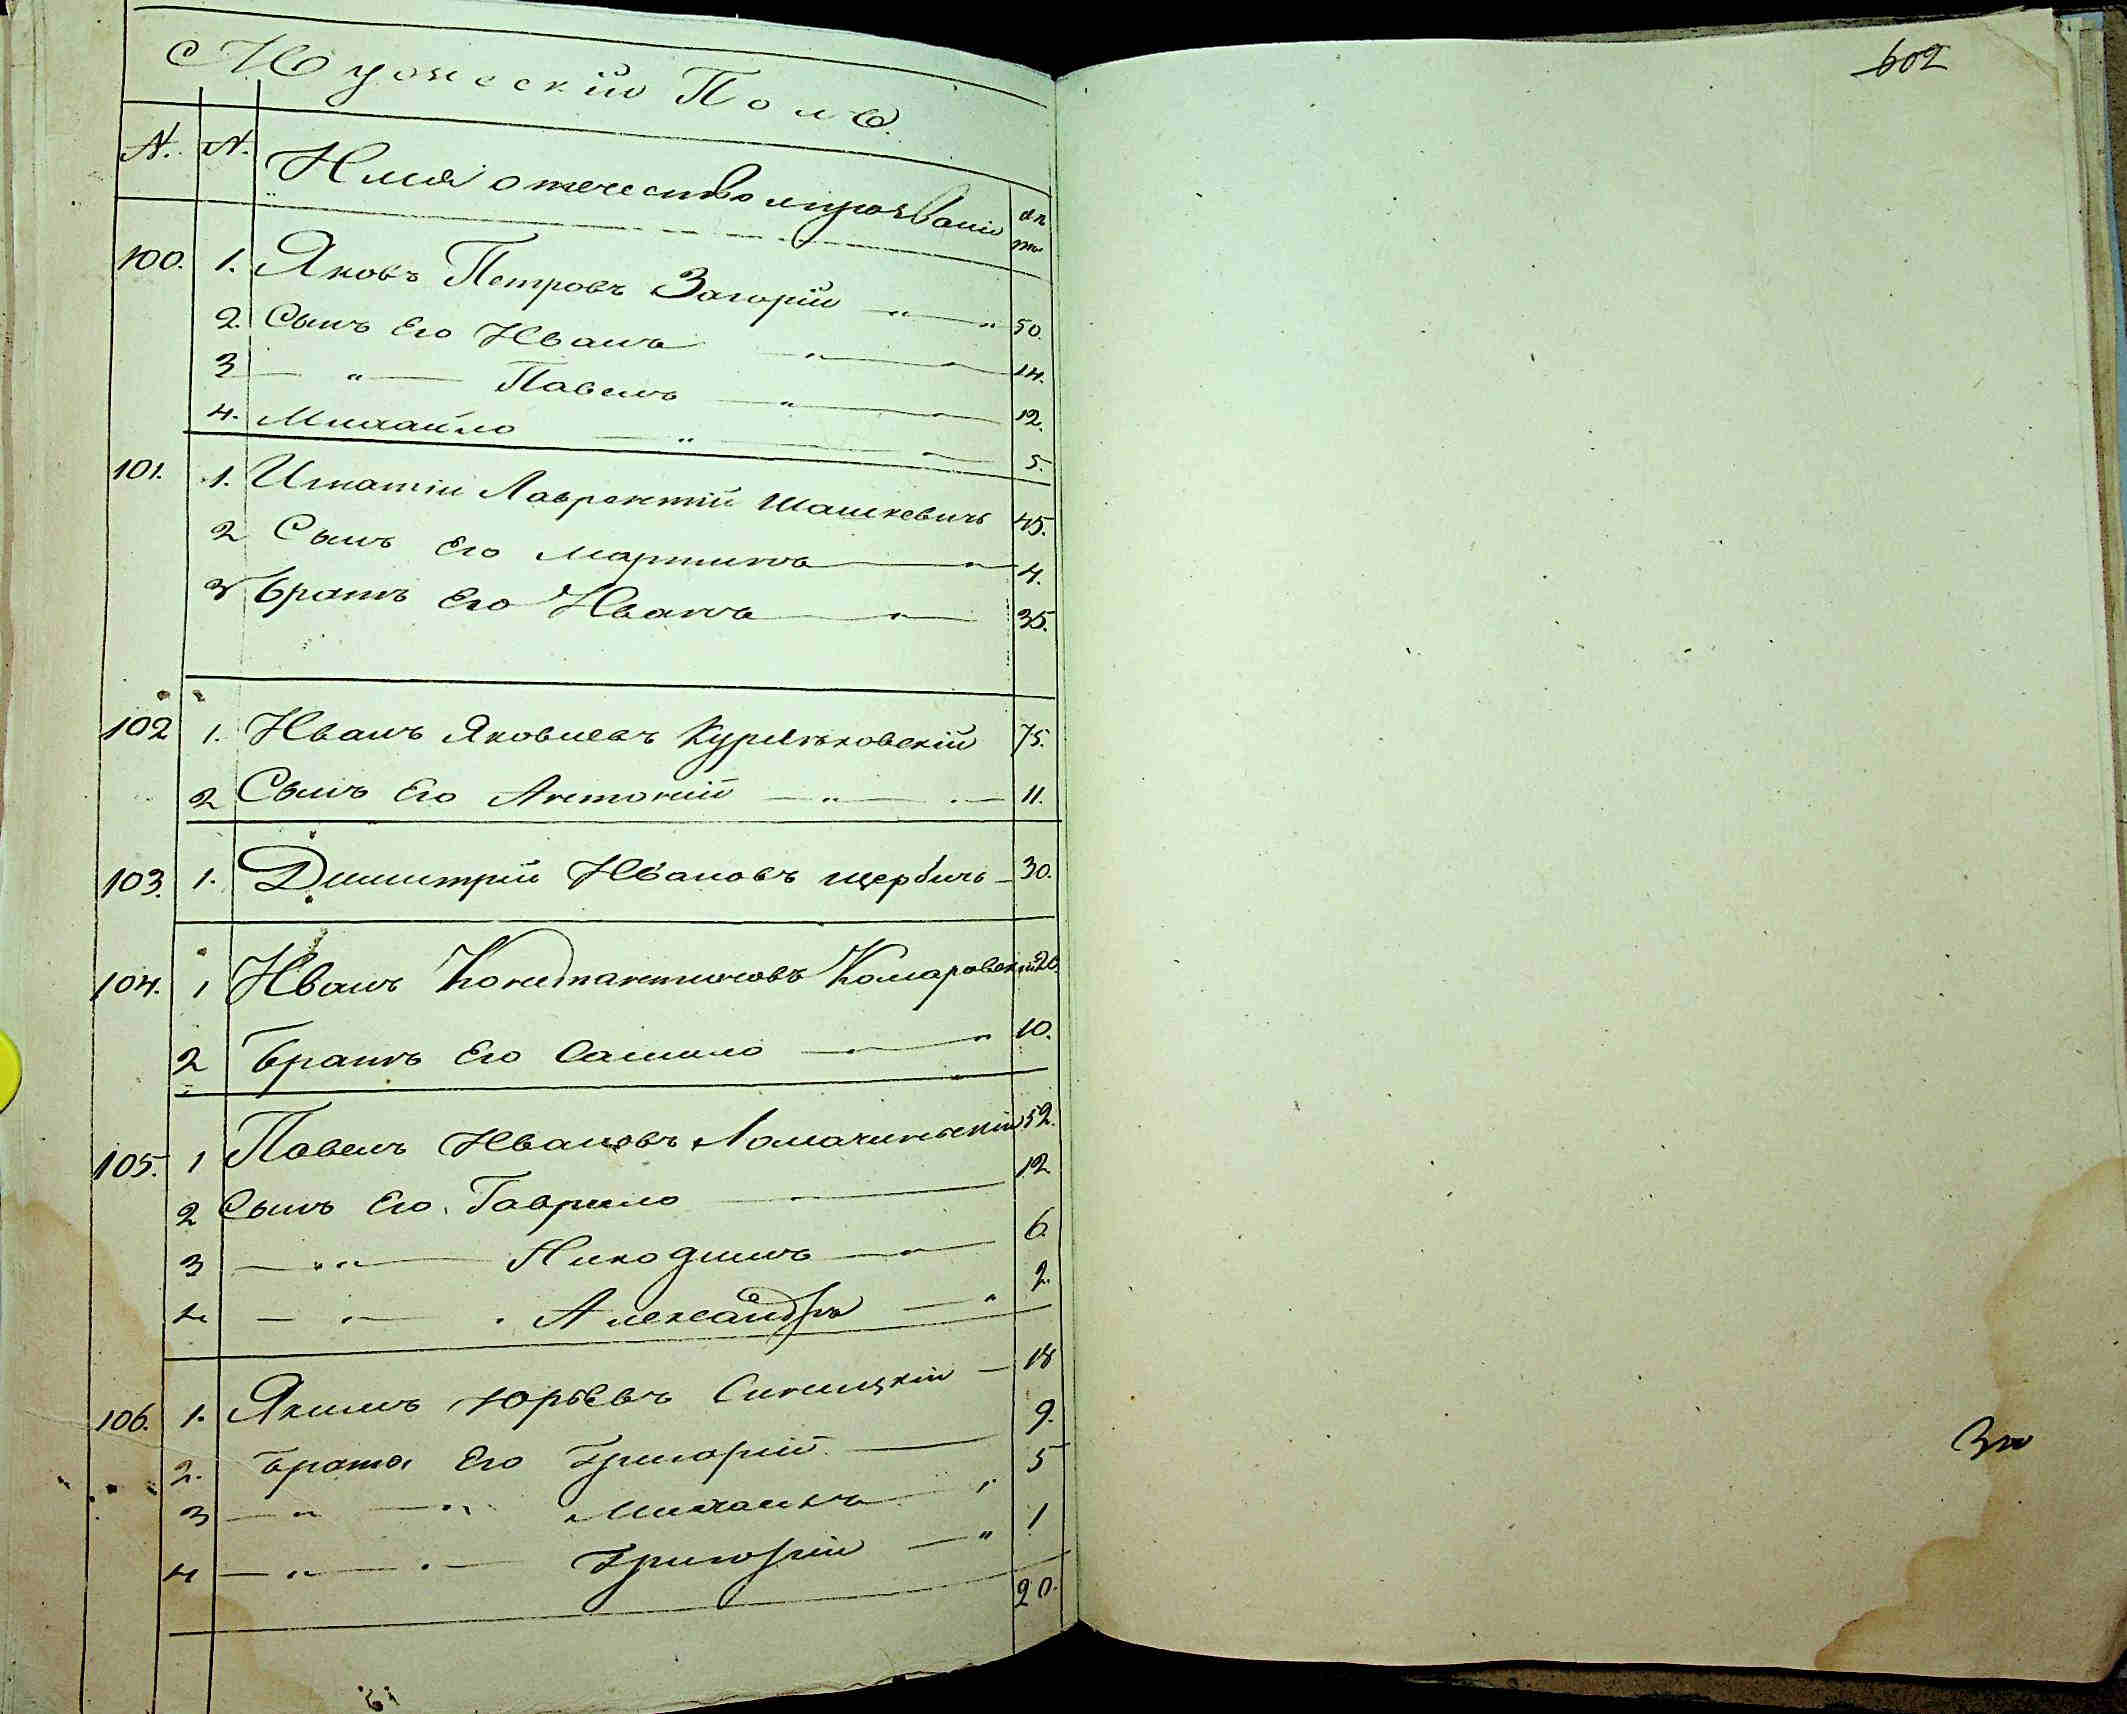 Мужескій Полъ.
N. N. Имя отечество и прозваніи лѣты
100. 1. Яковъ Петровъ Загорій 50.
2. Сынъ Его Иванъ 14.
3 — " — Павелъ 12.
4. Михайло 5.
101. 1. Игнатій Лаврентій Шашкевичъ 45.
2 Сынъ Его Мартинъ 4.
3 Братъ Его Иванъ 35.
102 1. Иванъ Яковлевъ Курятковскій 75.
2 Сынъ Его Антоній 11.
103. 1. Димитрій Ивановъ щербичъ 30.
104. 1 Иванъ Константиновъ Комаровскій 20.
2 Братъ Его Самыло 10.
105. 1 Павелъ Ивановъ Ломачинскій 52.
2 Сынъ Его Гаврыло 12.
3 — " — Никодимъ 6.
4 — " — Александръ 2.
106. 1. Якимъ Юрьевъ Синицкій 18
2. Брата Его Григорій 9.
3 — " — " Михаилъ 5
4 — " — Григорій 1
20.
602